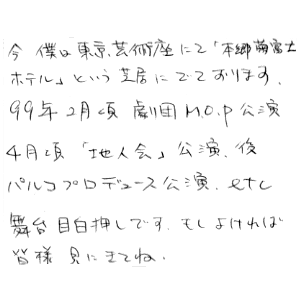 今 僕は東京芸術座にて「本郷菊富士
ホテル」という芝居にでております.
99年2月頃 劇団M.O.P公演
4月頃「地人会」公演. 後
パルコプロデュース公演. etc
舞台目白押しです. もしよければ
皆様 見にきてね.